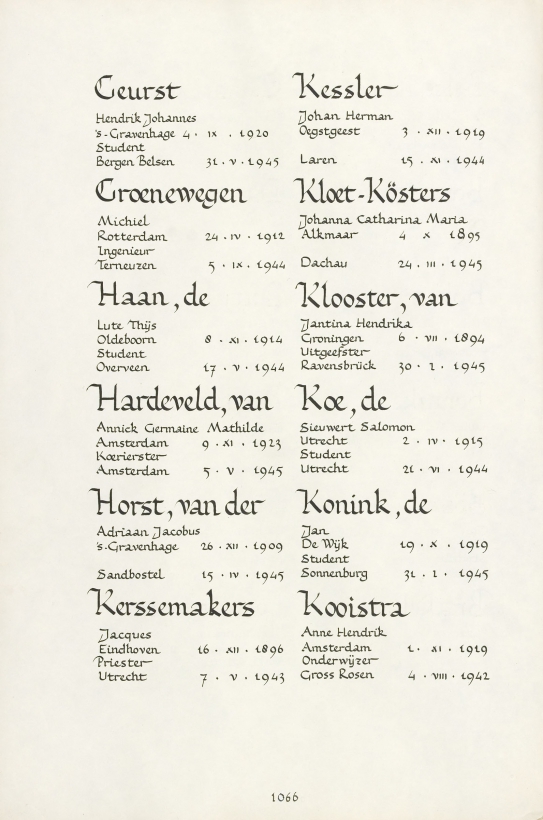 Geurst
Hendrik Johannes
's-Gravenhage 4 · IX · 1920
Student
Bergen Belsen 31 · V · 1945
Groenewegen
Michiel
Rotterdam 24 · IV · 1912
Ingenieur
Terneuzen 5 · IX · 1944
Haan, de
Lute Thijs
Oldeboorn 8 · XI · 1914
Student
Overveen 17 · V · 1944
Hardeveld, van
Annick Germaine Mathilde
Amsterdam 9 · XI · 1923
Koerierster
Amsterdam 5 · V · 1945
Horst, van der
Adriaan Jacobus
's-Gravenhage 26 · XII · 1909
Sandbostel 15 · IV · 1945
Kerssemakers
Jacques
Eindhoven 16 · XII · 1896
Priester
Utrecht 7 · V · 1943
Kessler
Johan Herman
Oegstgeest 3 · XII · 1919
Laren 15 · XI · 1944
Kloet-Kösters
Johanna Catharina Maria
Alkmaar 4 X 1895
Dachau 24 · III · 1945
Klooster, van
Jantina Hendrika
Groningen 6 · VII · 1894
Uitgeefster
Ravensbrück 30 · 1 · 1945
Koe, de
Sieuwert Salomon
Utrecht 2 · IV · 1915
Student
Utrecht 21 · VI · 1944
Konink, de
Jan
De Wijk 19 · X · 1919
Student
Sonnenburg 31 · 1 · 1945
Kooistra
Anne Hendrik
Amsterdam 1 · XI · 1919
Onderwijzer
Gross Rosen 4 · VIII · 1942
1066